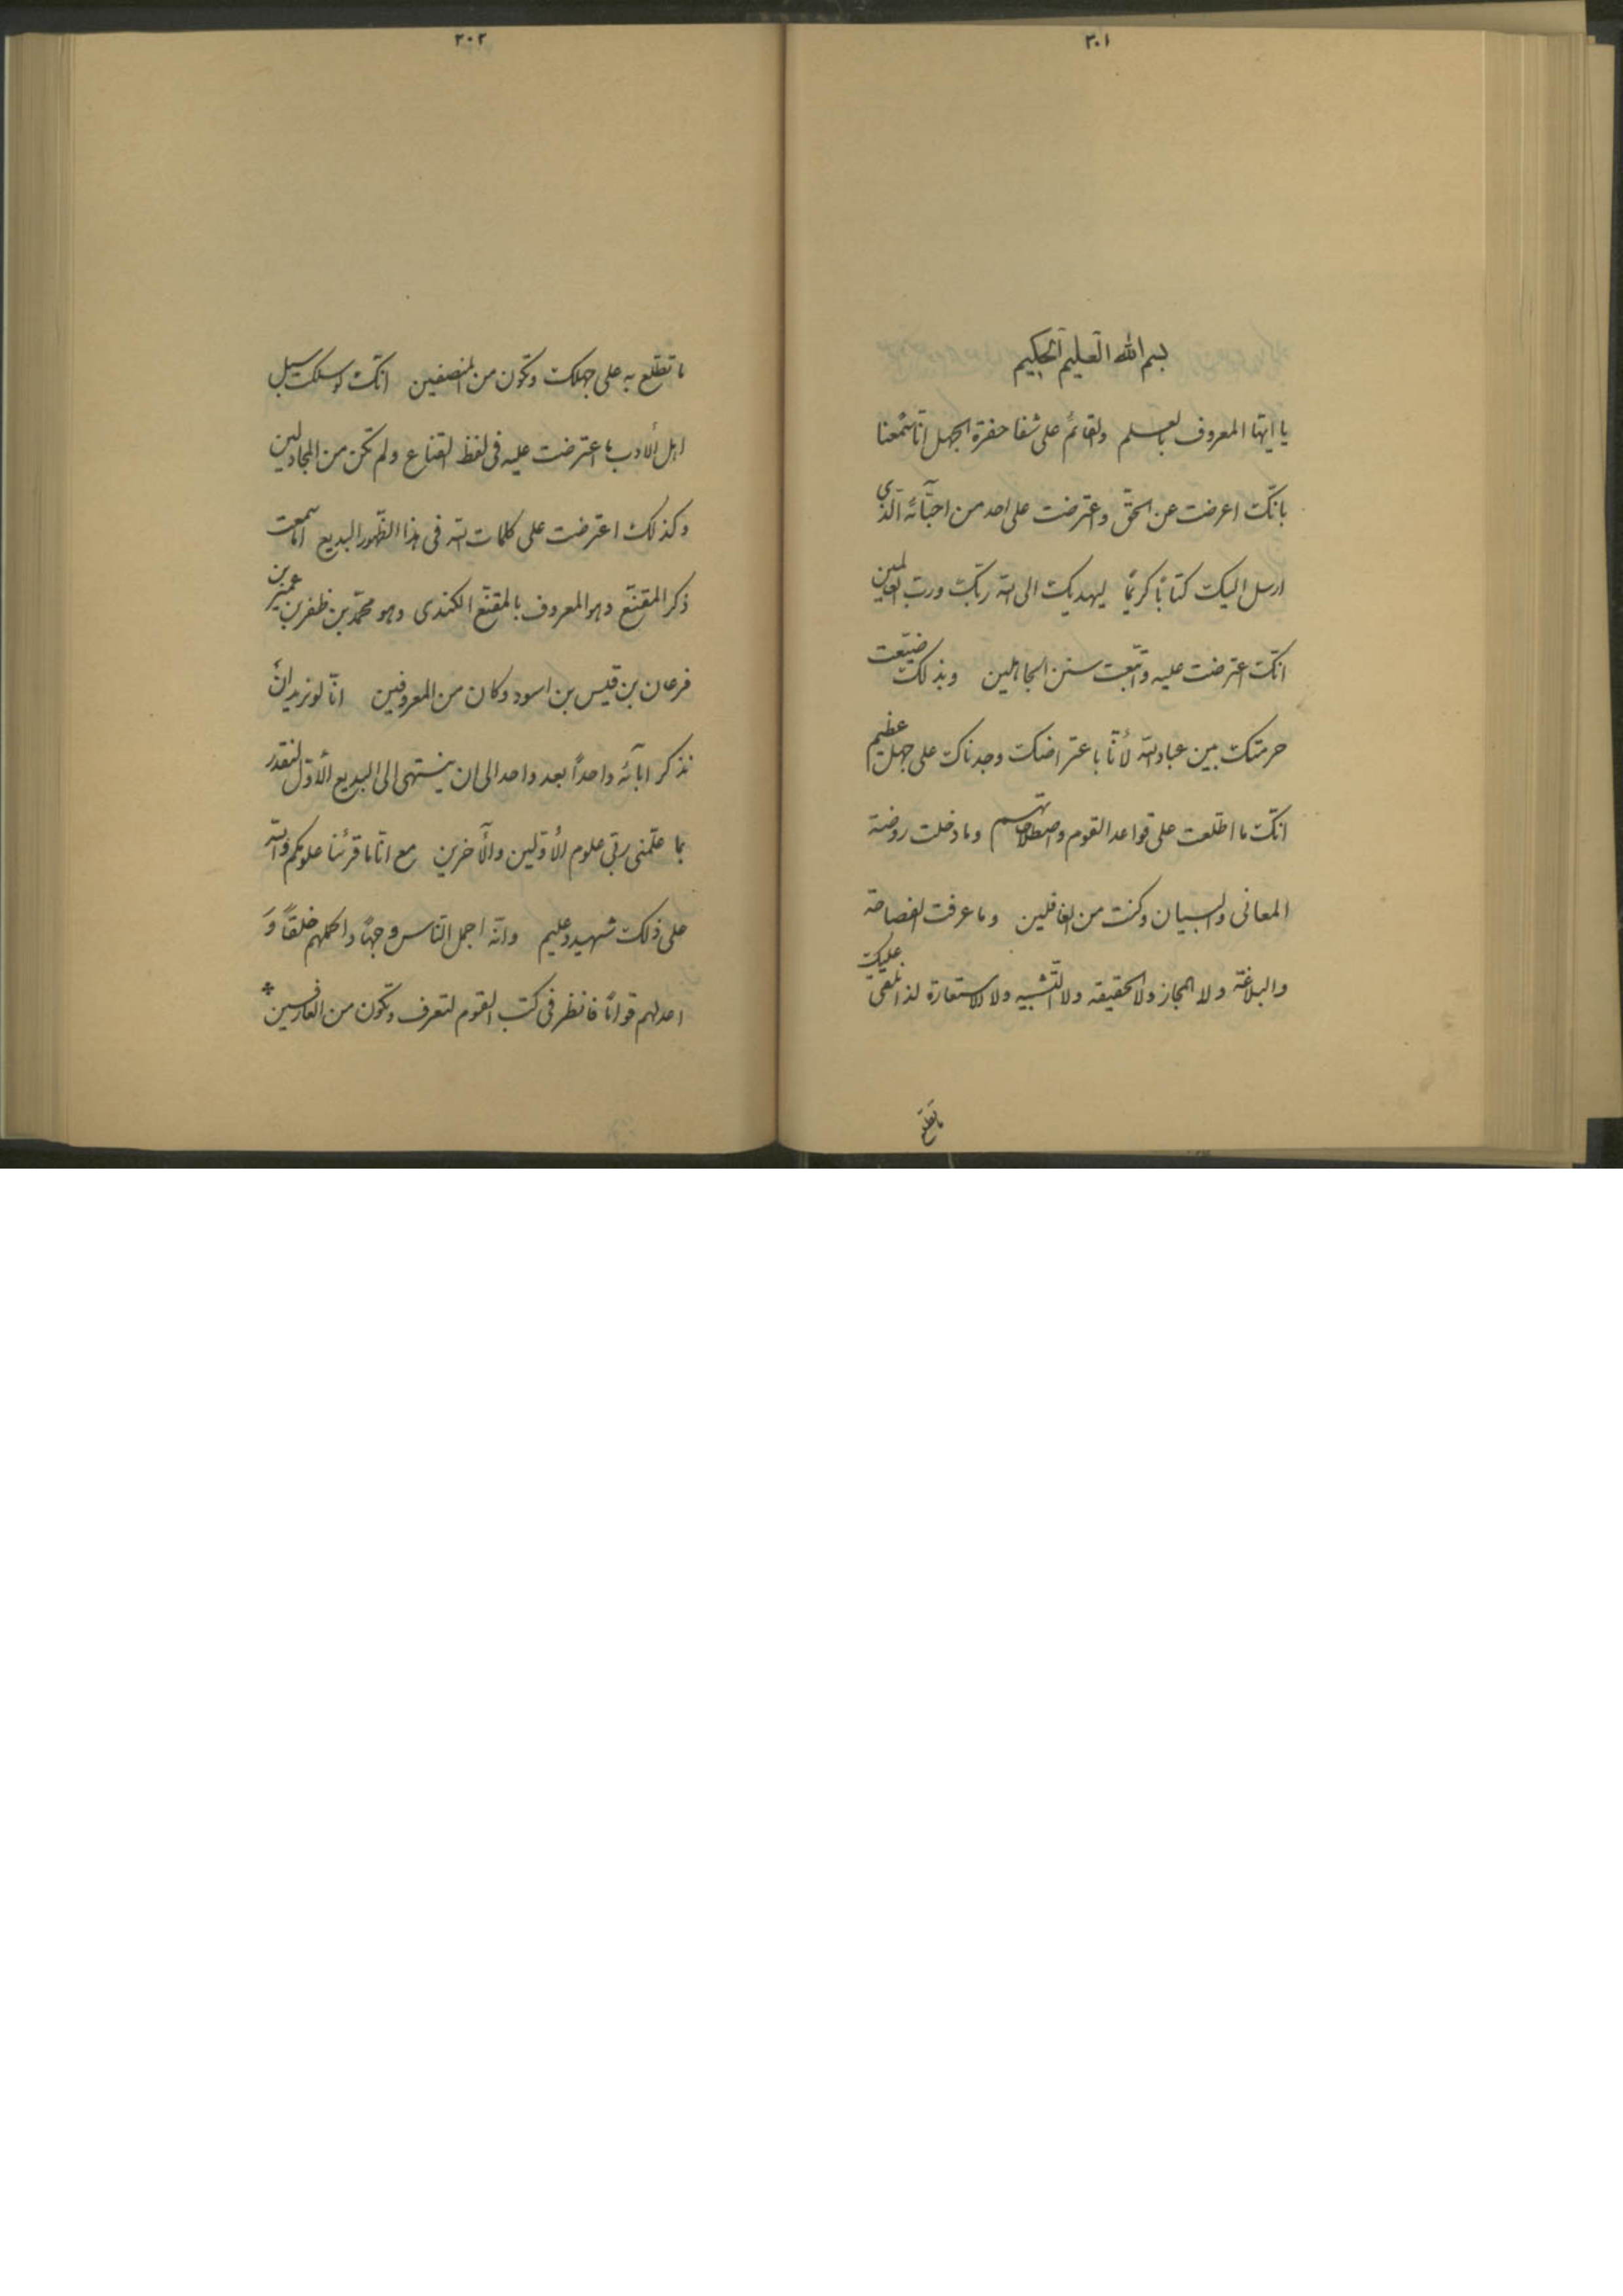 ٣٠١
بسم الله العليم الحكيم
يا ايها المعروف بالعلم والقائم على شفا حفرة الجهل انا سمعنا
بانك اعرضت عن الحق واعترضت على احد من احبائه الذي
ارسل اليك كتابا كريما ليهديك الى الله ربك ورب العالمين
انك اعترضت عليه واتبعت سنن الجاهلين وبذلك ضيعت
حرمتك بين عباد الله لانا باعتراضك وجدناك على جهل عظيم
انك ما اطلعت على قواعد القوم واصطلاحاتهم وما دخلت روضة
المعاني والبيان وكنت من الغافلين وما عرفت الفصاحة
والبلاغة ولا المجاز ولا الحقيقه ولا التشبيه ولا الاستعارة لذا نلقي عليك
ما تطلع
٣٠٢
ما تطلع به على جهلك وتكون من المنصفين انك لو سلكت سبيل
اهل الأدب ما اعترضت عليه في لفظ القناع ولم تكن من المجادلين
وكذلك اعترضت على كلمات الله في هذا الظهور البديع اما سمعت
ذكر المقنع وهو المعروف بالمقنع الكندي وهو محمد بن ظفر بن عمير بن
فرعان بن قيس بن اسود وكان من المعروفين انا لو نريد ان
نذكر ابائه واحدا بعد واحد الى ان ينتهي الى البديع الأول لنقدر
بما علمني ربي علوم الأولين والآخرين مع انا ما قرئنا علومكم والله
على ذلك شهيد وعليم وانه اجمل الناس وجها واكملهم خلقا و
اعدلهم قواما فانظر في كتب القوم لتعرف وتكون من العارفين *